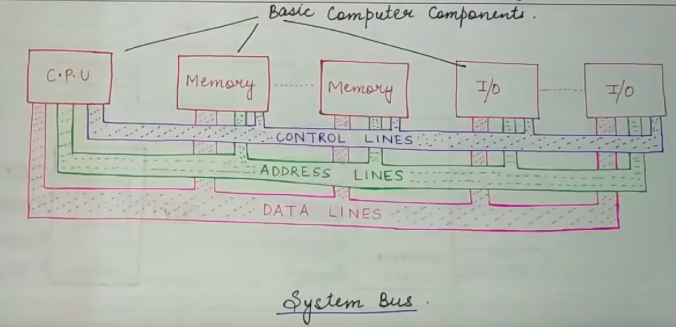 Basic Computer Components.
C.P.U
Memory
Memory
I/O
I/O
CONTROL LINES
ADDRESS LINES
DATA LINES
System Bus.